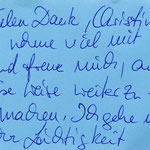 Vielen Dank, Christin
nehme viel mit
und freue mich, au
se weise weiter zu
machen, Ich gehe m
er Leichtigkeit